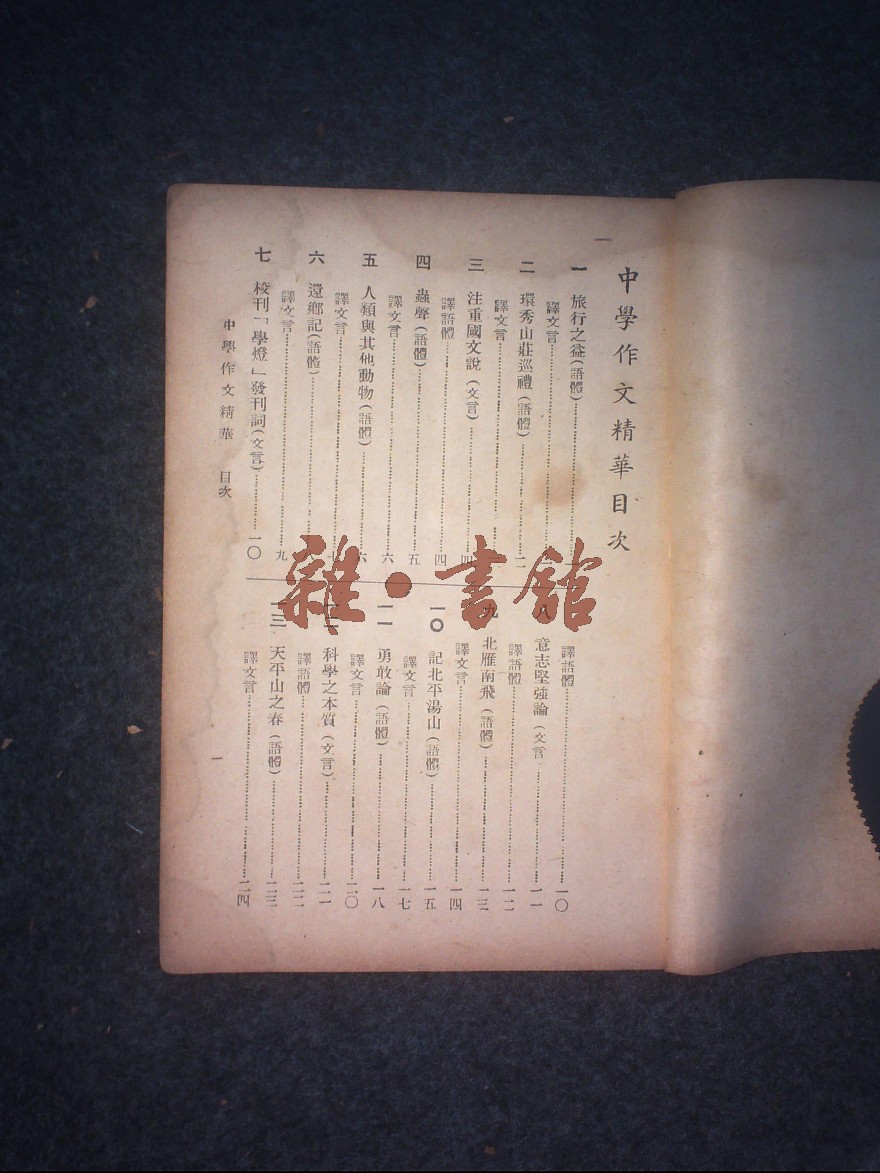 中學作文精華目次
一 旅行之益(語體)
譯文言
二 環秀山莊巡禮(語體)
譯文言
三 注重國文說(文言)
譯語體 四
四 蟲聲(語體) 五
譯文言 六
五 人類與其他動物(語體) 六
譯文言
六 還鄉記(語體)
譯文言 九
七 校刊「學燈」發刊詞(文言) 一〇
譯語體 一〇
八 意志堅強論(文言 一一
譯語體 一二
九 北雁南飛(語體) 一三
譯文言 一四
一〇 記北平湯山(語體) 一五
譯文言 一七
一一 勇敢論(語體) 一八
譯文言 二〇
科學之本質(文言) 二一
譯語體 二二
一三 天平山之春(語體) 二三
譯文言 二四
中學作文精華 目次
一
雜·書館